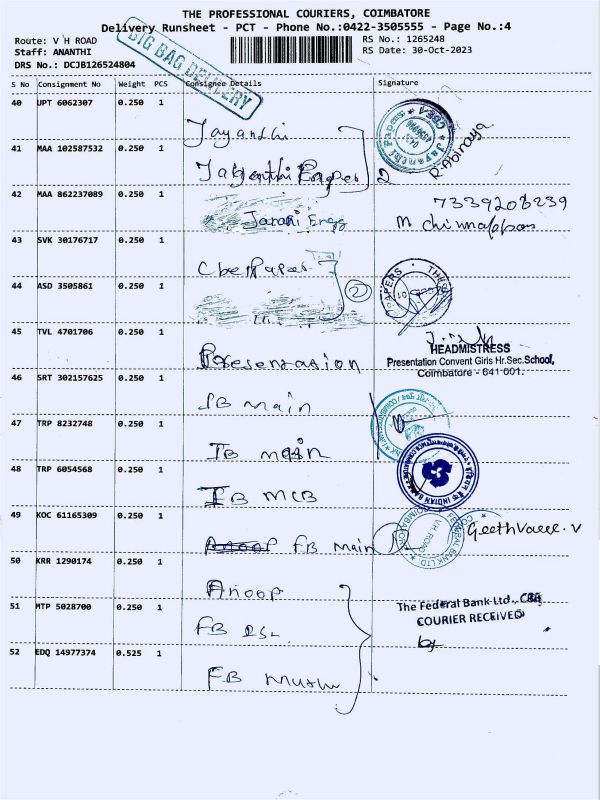 THE PROFESSIONAL COURIERS, COIMBATORE
Delivery Runsheet - PCT - Phone No.:0422-3505555 - Page No.:4
Route: V H ROAD
RS No.: 1265248
Staff: ANANTHI
RS Date: 30-Oct-2023
DRS No.: DCJB126524804
BIG BAG DELIVERY
S No Consignment No Weight PCS Consignee Details Signature
40 UPT 6062307 0.250 1
Jayanthi
41 MAA 102587532 0.250 1
2
R. Abinaya
42 MAA 862237089 0.250 1
Janani Engg
7339208239
M Chinnappan
43 SVK 30176717 0.250 1
44 ASD 3505861 0.250 1
2
45 TVL 4701706 0.250 1
Presentation
HEADMISTRESS
Presentation Convent Girls Hr.Sec.School,
Coimbatore - 641 001.
46 SRT 302157625 0.250 1
IB Main
47 TRP 8232748 0.250 1
IB main
48 TRP 6054568 0.250 1
IB MCB
INDIAN BANK
49 KOC 61165309 0.250 1
FB Main
FEDERAL BANK LTD
V.H. ROAD
50 KRR 1290174 0.250 1
Anoop
51 MTP 5028700 0.250 1
FB
The Federal Bank Ltd.,
COURIER RECEIVED
52 EDQ 14977374 0.525 1
FB